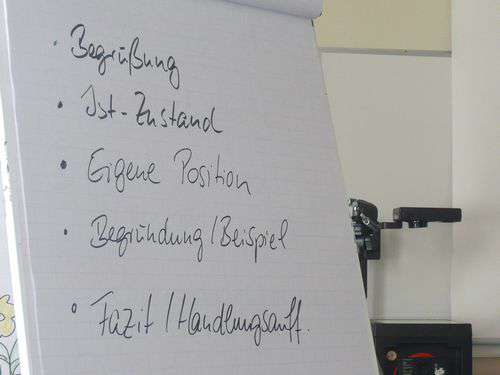 · Begrüßung
· Ist-Zustand
· Eigene Position
· Begründung/Beispiel
· Fazit/Handlungsauff.